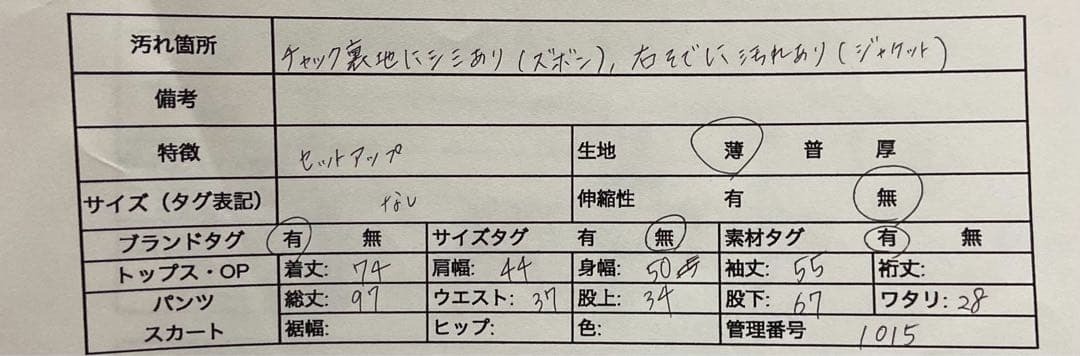 汚れ箇所 チャック裏地にシミあり(ズボン), 右そでに汚れあり(ジャケット)
備考
特徴 セットアップ 生地 薄 普 厚
サイズ(タグ表記) なし 伸縮性 有 無
ブランドタグ 有 無 サイズタグ 有 無 素材タグ 有 無
トップス・OP 着丈: 74 肩幅: 44 身幅: 50 袖丈: 55 裄丈:
パンツ 総丈: 97 ウエスト: 37 股上: 34 股下: 67 ワタリ: 28
スカート 裾幅: ヒップ: 色: 管理番号 1015